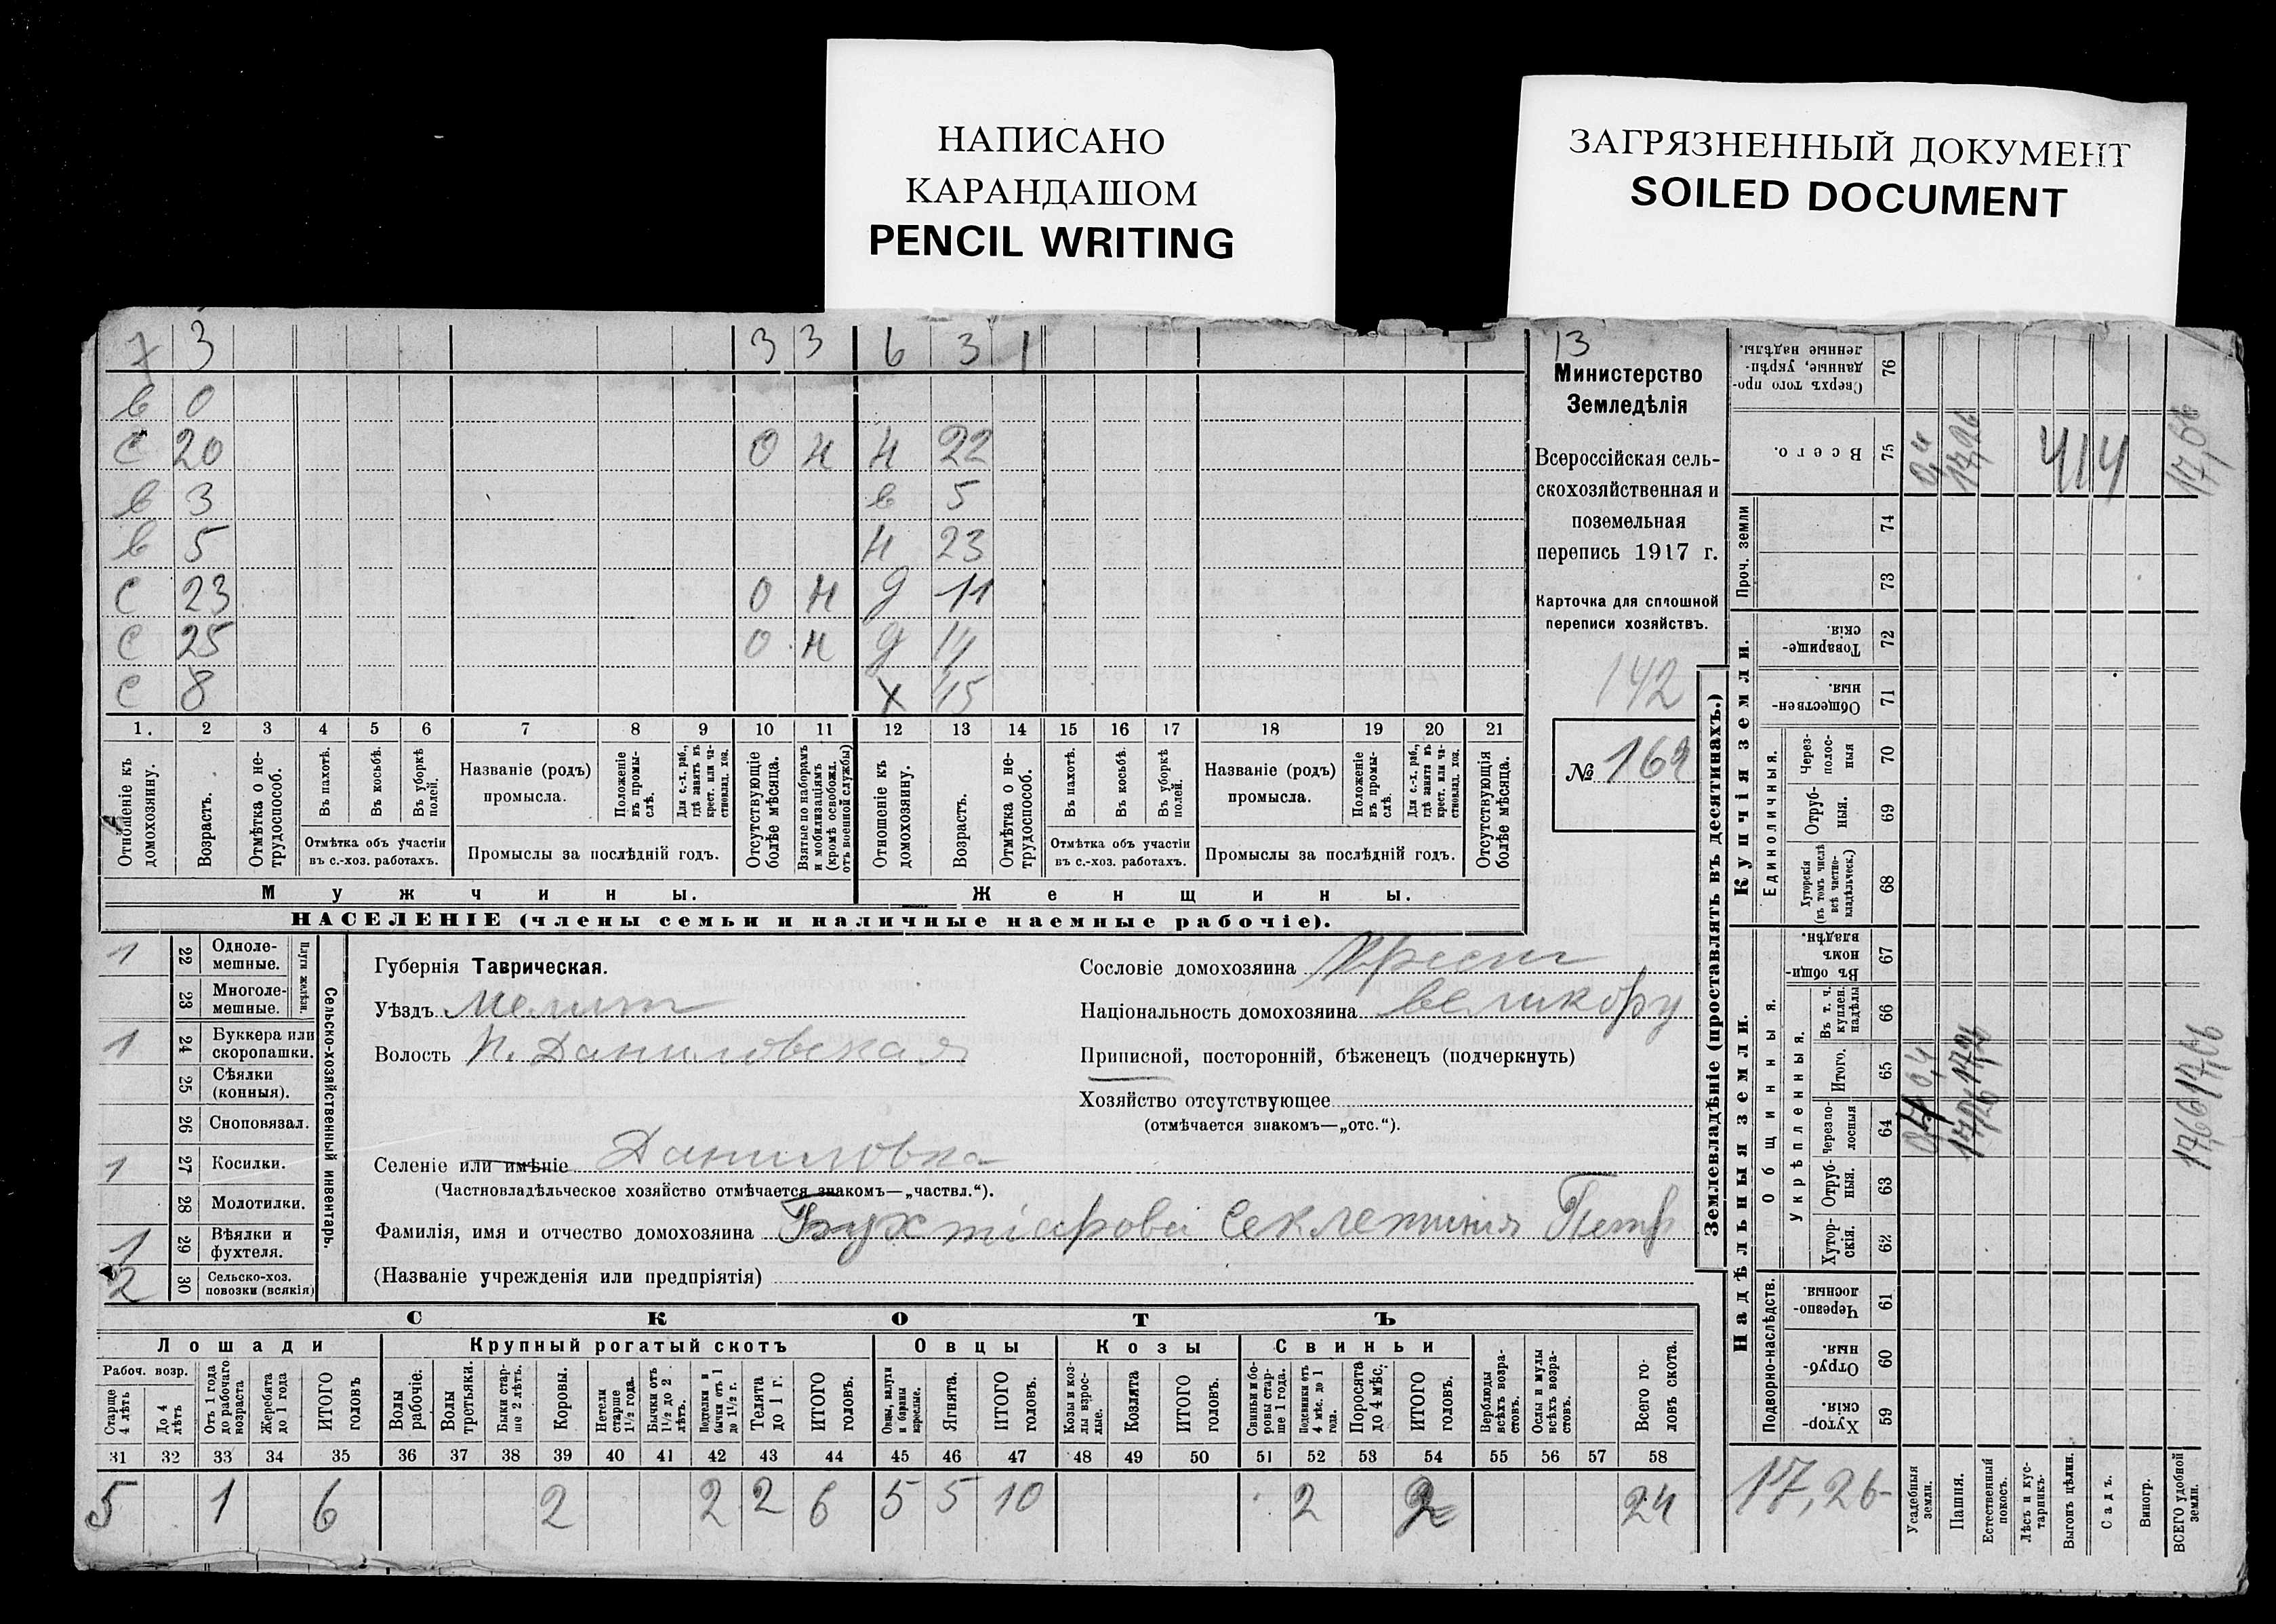 НАПИСАНО
КАРАНДАШОМ
PENCIL WRITING
ЗАГРЯЗНЕННЫЙ ДОКУМЕНТ
SOILED DOCUMENT
7 3 3 3 6 3 1
в 0
с 20 0 н н 22
в 3 в 5
в 5 н 23
с 23 0 н д 11
с 25 0 н д 14
с 8 х 45
1. 2 3 4 5 6 7 8 9 10 11 12 13 14 15 16 17 18 19 20 21
Отношеніе къ домохозяину.
Возрастъ.
Отмѣтка о нетрудоспособ.
Въ пахотѣ.
Въ косьбѣ.
Въ уборкѣ полей.
Отмѣтка объ участіи
въ с.-хоз. работахъ.
Названіе (родъ)
промысла.
Положеніе въ промыслѣ.
Для с.-х. раб., гдѣ занятъ въ крест. или частновлад. хоз.
Промыслы за послѣдній годъ.
Отсутствующіе болѣе мѣсяца.
Взятые по наборамъ и мобилизаціямъ (кромѣ освобожд. отъ военной службы)
Отношеніе къ домохозяину.
Возрастъ.
Отмѣтка о нетрудоспособ.
Въ пахотѣ.
Въ косьбѣ.
Въ уборкѣ полей.
Отмѣтка объ участіи
въ с.-хоз. работахъ.
Названіе (родъ)
промысла.
Положеніе въ промыслѣ.
Для с.-х. раб., гдѣ занята въ крест. или частновлад. хоз.
Промыслы за послѣдній годъ.
Отсутствующія болѣе мѣсяца.
Мужчины.
Женщины.
НАСЕЛЕНІЕ (члены семьи и наличные наемные рабочіе).
13
Министерство
Земледѣлія
Всероссійская сель-
скохозяйственная и
поземельная
перепись 1917 г.
Карточка для сплошной
переписи хозяйствъ.
142
№ 169
Сельско-хозяйственный инвентарь.
Плуги желѣзн.
1 22 Одноле-
мешные.
23 Многоле-
мешные.
1 24 Буккера или
скоропашки.
25 Сѣялки
(конныя).
26 Сноповязал.
1 27 Косилки.
28 Молотилки.
1 29 Вѣялки и
фухтеля.
2 30 Сельско-хоз.
повозки (всякія)
Губернія Таврическая.
Уѣздъ Мелит
Волость Н. Даниловская
Селеніе или имѣніе Даниловка
(Частновладѣльческое хозяйство отмѣчается знакомъ—„частвл.“).
Фамилія, имя и отчество домохозяина Бухтіарова Секлетинія Петр
(Названіе учрежденія или предпріятія)
Сословіе домохозяина Крест
Національность домохозяина великору
Приписной, посторонній, бѣженецъ (подчеркнуть)
Хозяйство отсутствующее
(отмѣчается знакомъ—„отс.“).
СКОТЪ
Лошади
Крупный рогатый скотъ
Овцы
Козы
Свиньи
Рабоч. возр.
Старше 4 лѣтъ
До 4 лѣтъ
Отъ 1 года до рабочаго возраста
Жеребята до 1 года
ИТОГО головъ
Волы рабочіе.
Волы третьяки.
Быки старше 2 лѣтъ.
Коровы.
Нетели старше 1½ года.
Бычки отъ 1½ до 2 лѣтъ.
Подтелки и бычки отъ 1 до 1½ г.
Телята до 1 г.
ИТОГО головъ.
Овцы, валухи и бараны взрослые.
Ягнята.
ИТОГО головъ.
Козы и козлы взрослые.
Козлята
ИТОГО головъ.
Свиньи и боровы старше 1 года.
Подсвинки отъ 4 мѣс. до 1 года.
Поросята до 4 мѣс.
ИТОГО головъ.
Верблюды всѣхъ возрастовъ.
Ослы и мулы всѣхъ возрастовъ.
Всего головъ скота.
31 32 33 34 35 36 37 38 39 40 41 42 43 44 45 46 47 48 49 50 51 52 53 54 55 56 57 58
5 1 6 2 2 2 6 5 5 10 2 2 24
Землевладѣніе (проставлять въ десятинахъ.)
Сверхъ того проданные, укрѣпленные надѣлы. 76
Всего. 75 0,4 17,26 414 17,66
Проч. земли
74
73
Купчія земли.
Товарищескія. 72
Общественныя. 71
Единоличныя.
Черезполосныя 70
Отрубныя. 69
Хуторскія (въ томъ числѣ всѣ частновладѣльческ.) 68
Надѣльныя земли.
Общинныя.
Въ общинномъ владѣн. 67
Укрѣпленныя.
Въ т. ч. куплен. надѣлы 66
Итого. 65 0,4 17,26 17,66
Черезполосныя 64 0,4 17,26 17,66
Отрубныя. 63
Хуторскія. 62
Подворно-наслѣдств.
Черезполосныя. 61
Отрубныя. 60
Хуторскія. 59
17,26
Усадебныя земли.
Пашня.
Естественный покосъ.
Лѣсъ и кустарникъ.
Выгонъ цѣлин.
Садъ.
Виногр.
ВСЕГО удобной земли.